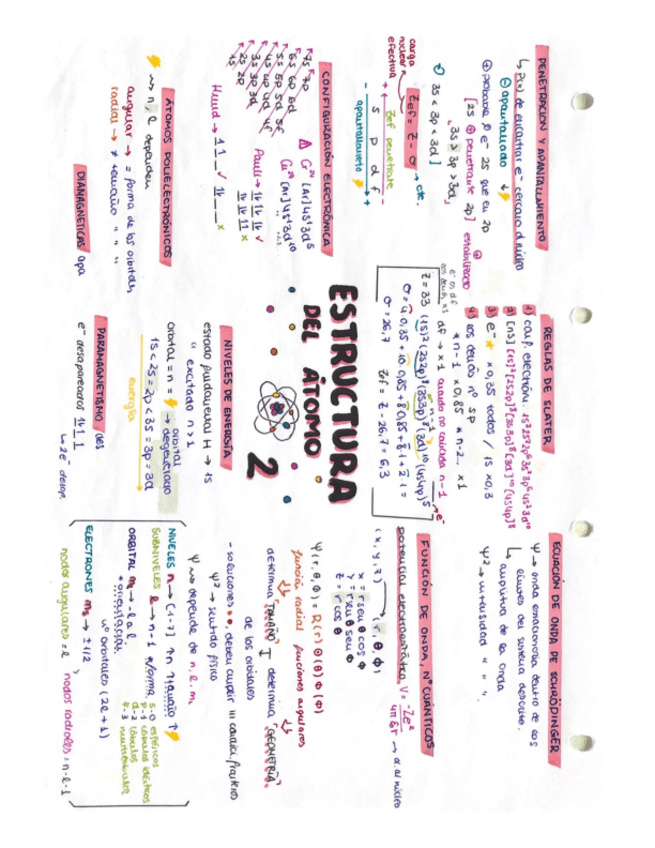 ESTRUCTURA
DEL ÁTOMO
2
PENETRACIÓN Y APANTALLAMIENTO
↳ P(x) de encontrar e⁻ cercano al núcleo
⊖ apantallado
⊕ probable e⁻ 2s que en 2p
[2s ⊕ penetrante 2p]
estabilizado
3s > 3p > 3d
3s < 3p < 3d
carga
nuclear
efectiva
Zef = Z - σ → cte.
+ Zef penetrante -
s p d f
- apantallamiento +
CONFIGURACIÓN ELECTRÓNICA
7s 7p
6s 6p 6d
5s 5p 5d 5f
4s 4p 4d 4f
3s 3p 3d
2s 2p
1s
Cr²⁴ [Ar] 4s¹ 3d⁵
Cu²⁹ [Ar] 4s¹ 3d¹⁰
Pauli →
Hund →
ÁTOMOS POLIELECTRÓNICOS
n, l dependen
angular → = forma de los orbitales
radial → ≠ tamaño " " "
DIAMAGNÉTICAS apa
REGLAS DE SLATER
1) conf. electrón. 1s² 2s² 2p⁶ 3s² 3p⁶ 4s² 3d¹⁰
2) [ns] (1s)² (2s2p)⁸ (3s3p)⁸ (3d)¹⁰ (4s4p)⁸
3) e⁻ ×0,35 todos / 1s ×0,3
4) los demás nº sp
* n-1 ×0,85 * n-2... ×1
df → ×1 cuando no coincida n-1
Z = 33 (1s)² (2s2p)⁸ (3s3p)⁸ (3d)¹⁰ (4s4p)⁵
σ = 4·0,35 + 10·0,85 + 8·0,85 + 8·1 + 2·1 =
σ = 26,7 Zef = Z - 26,7 = 6,3
NIVELES DE ENERGÍA
estado fundamental H → 1s
" excitado n > 1
orbital = n = orbital
→ degenerado
1s < 2s = 2p < 3s = 3p = 3d
energía
PARAMAGNETISMO des
e⁻ desapareados
↳ 2e⁻ desap.
ECUACIÓN DE ONDA DE SCHRÖDINGER
Ψ → onda estacionaria dentro de los
límites del sistema descrito.
↳ amplitud de la onda
Ψ² → intensidad " " ".
FUNCIÓN DE ONDA, Nº CUÁNTICOS
potencial electrostático V = -Ze² / 4πεr → e⁻ al núcleo
(x, y, z) → (r, θ, Φ)
x = r senθ cosΦ
y = r senθ senΦ
z = r cosθ
Ψ(r, θ, Φ) = R(r) Θ(θ) Φ(Φ)
función radial funciones angulares
determina "TAMAÑO" determina "GEOMETRÍA"
de los orbitales
- soluciones, deben cumplir
Ψ² → sentido físico
Ψ depende de n, l, mₗ
NIVELES n → (1-7) ↑n ↑tamaño ↑
SUBNIVELES l → n-1 forma
s-0 esféricos
p-1 lóbulos
d-2 lóbulos
f-3
ORBITAL mₗ → -l a l
* orientación
nº orbitales (2l+1)
ELECTRONES mₛ → ±1/2
nodos angulares = l, nodos radiales = n-l-1